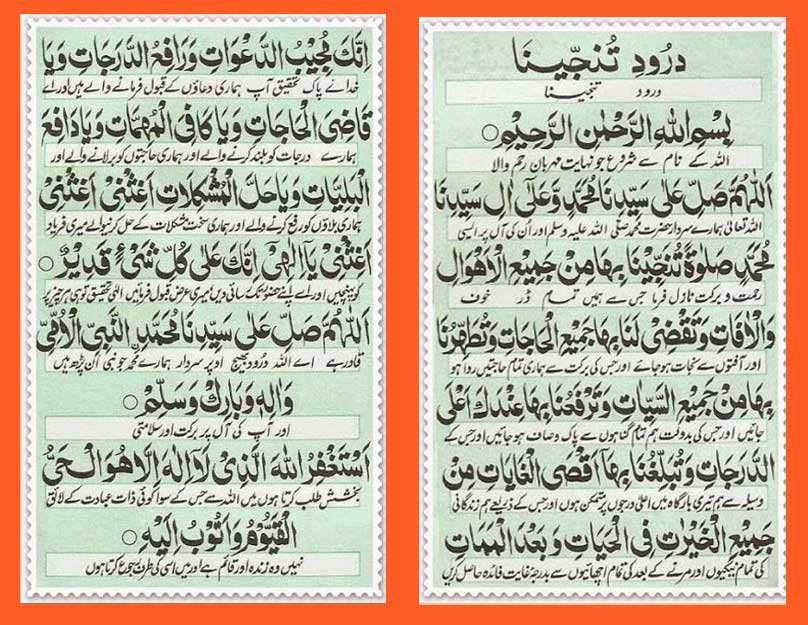 دُرُودِ تُنَجِّينَا
درود تنجینا
بِسْمِ اللهِ الرَّحْمٰنِ الرَّحِيْمِ ○
اللہ کے نام سے شروع جو نہایت مہربان رحم والا
اَللّٰهُمَّ صَلِّ عَلٰى سَيِّدِنَا مُحَمَّدٍ وَّعَلٰى اٰلِ سَيِّدِنَا
اللہ تعالٰی ہمارے سردار حضرت محمد صلی اللہ علیہ وسلم اور اُن کی آل پر ایسی
مُحَمَّدٍ صَلٰوةً تُنَجِّيْنَا بِهَا مِنْ جَمِيْعِ الْاَهْوَالِ
رحمت و برکت نازل فرما جس سے ہمیں تمام ڈر خوف
وَالْاٰفَاتِ وَتَقْضِىْ لَنَا بِهَا جَمِيْعَ الْحَاجَاتِ وَتُطَهِّرُنَا
اور آفتوں سے نجات ہو جائے اور جس کی برکت سے ہماری تمام حاجتیں روا ہو
بِهَا مِنْ جَمِيْعِ السَّيِّاٰتِ وَتَرْفَعُنَا بِهَا عِنْدَكَ اَعْلَى
جائیں اور جس کی بدولت ہم تمام گناہوں سے پاک و صاف ہو جائیں اور جس کے
الدَّرَجَاتِ وَتُبَلِّغُنَا بِهَا اَقْصَى الْغَايَاتِ مِنْ
وسیلہ سے ہم تیری بارگاہ میں اعلیٰ درجوں پر متمکن ہوں اور جس کے ذریعے ہم زندگانی
جَمِيْعِ الْخَيْرٰتِ فِى الْحَيَاتِ وَبَعْدَ الْمَمَاتِ
کی تمام نیکیوں اور مرنے کے بعد کی تمام اچھائیوں سے بدرجۂ غایت فائدہ حاصل کریں
اِنَّكَ مُجِيْبُ الدَّعْوَاتِ وَرَافِعُ الدَّرَجَاتِ وَيَا
خدائے پاک تحقیق آپ ہماری دعاؤں کے قبول فرمانے والے ہیں اور اے
قَاضِىَ الْحَاجَاتِ وَيَا كَافِىَ الْمُهِمَّاتِ وَيَا دَافِعَ
ہمارے درجات کو بلند کرنے والے اور ہماری حاجتوں کو بر لانے والے اور
الْبَلِيَّاتِ وَيَا حَلَّ الْمُشْكِلَاتِ اَغِثْنِىْ اَغِثْنِىْ
ہماری بلاؤں کو رفع کرنے والے اور ہماری سخت مشکلات کے حل کرنیوالے میری فریاد
اَغِثْنِىْ يَا اِلٰهِىْ اِنَّكَ عَلٰى كُلِّ شَىْءٍ قَدِيْرٌ ○
کو پہنچیں اور اے اپنے حضور تک رسائی دیں میری عرض قبول فرمائیں الٰہی تحقیق تو ہی ہر چیز پر
اَللّٰهُمَّ صَلِّ عَلٰى سَيِّدِنَا مُحَمَّدِ النَّبِىِّ الْاُمِّىِّ
قادر ہے اے اللہ درود بھیج اوپر سردار ہمارے محمد جو نبی اَن پڑھ ہیں
وَاٰلِهٖ وَبَارِكْ وَسَلِّمْ ○
اور آپ کی آل پر برکت اور سلامتی
اَسْتَغْفِرُ اللهَ الَّذِىْ لَاۤ اِلٰهَ اِلَّا هُوَ الْحَىُّ
بخشش طلب کرتا ہوں میں اللہ سے جس کے سوا کوئی ذات عبادت کے لائق
الْقَيُّوْمُ وَاَتُوْبُ اِلَيْهِ ○
نہیں وہ زندہ اور قائم ہے اور میں اسی کی طرف رجوع کرتا ہوں